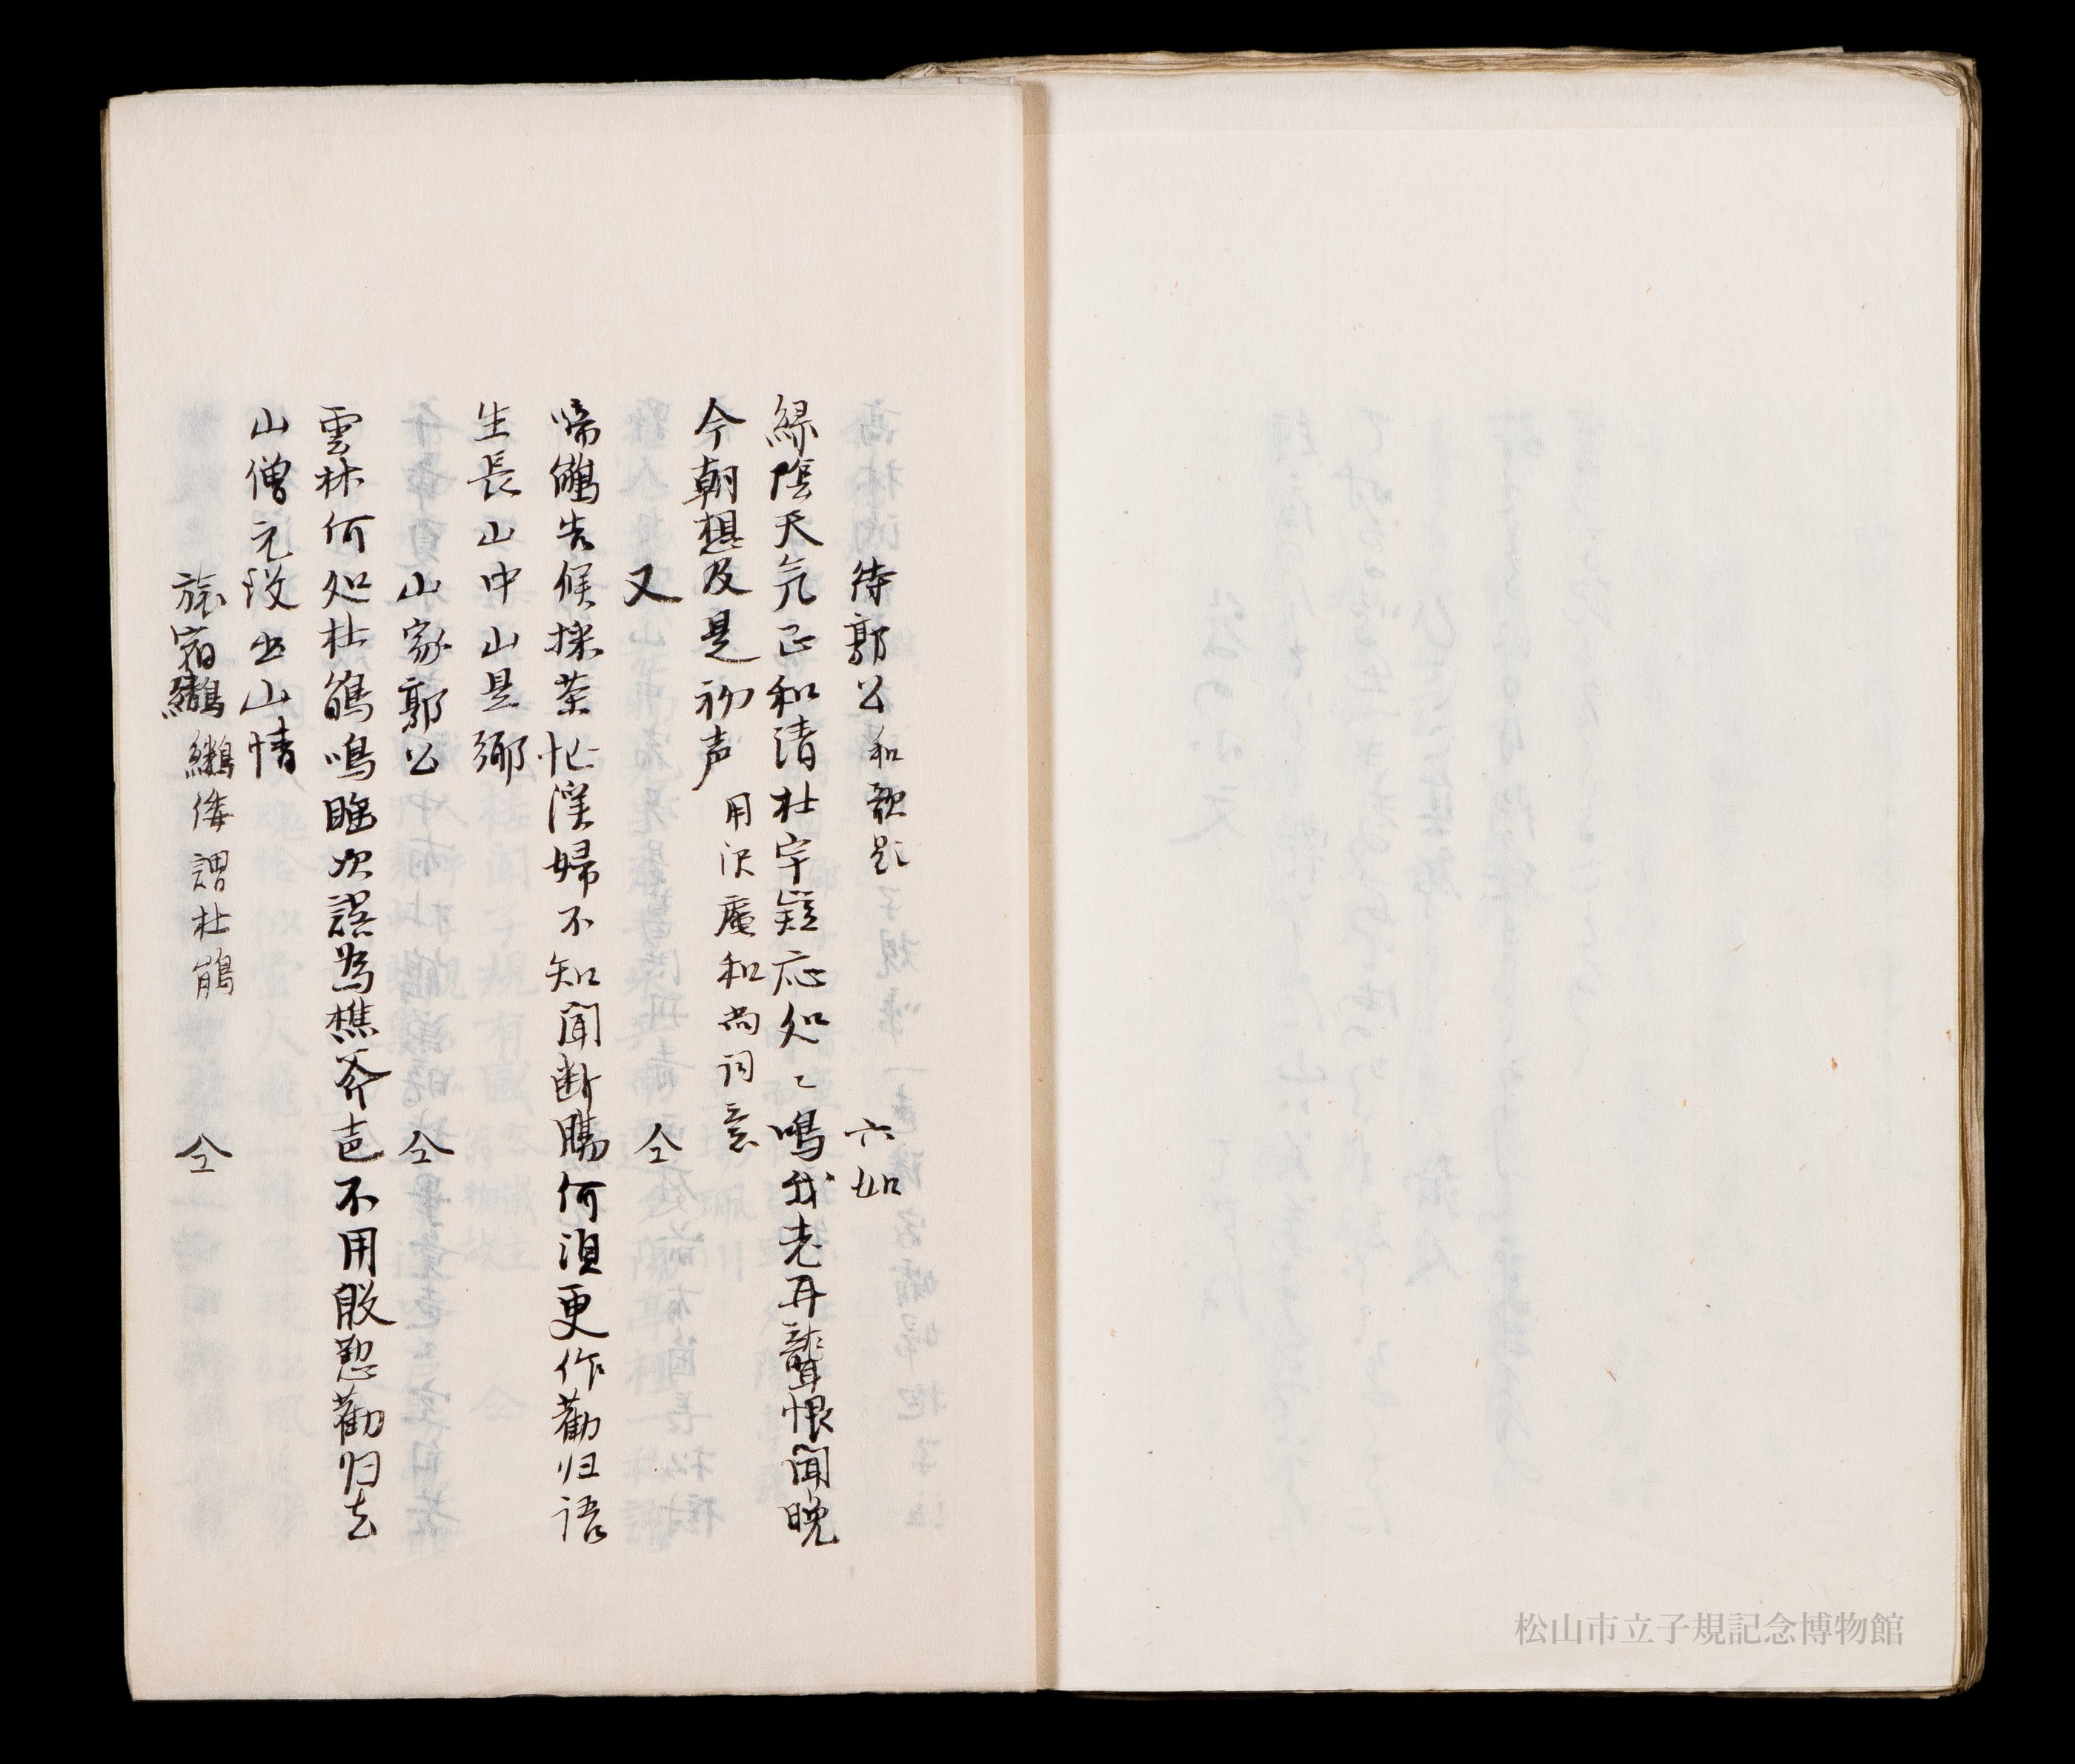 待郭公 和歌題 六如
緑陰天気正和清杜宇疑応処〻鳴我老耳聾恨聞晩
今朝想及是初声 用沢庵和尚詞意
又 仝
啼鵑告候採茶忙渓婦不知聞断腸何須更作勧归語
生長山中山是郷
山家郭公 仝
雲林何処杜鵑鳴眠次誤為樵斧声不用殷懃勧归去
山僧元没出山情
旅宿 倭謂杜鵑 仝
松山市立子規記念博物館